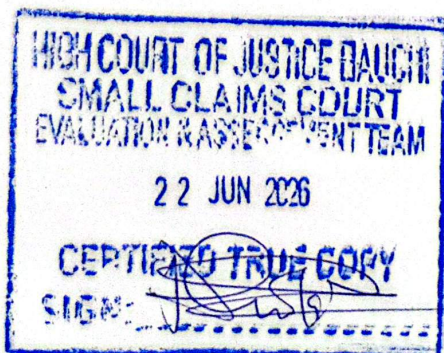 HIGH COURT OF JUSTICE BAUCHI
SMALL CLAIMS COURT
EVALUATION & ASSESSMENT TEAM
22 JUN 2026
CERTIFIED TRUE COPY
SIGN: